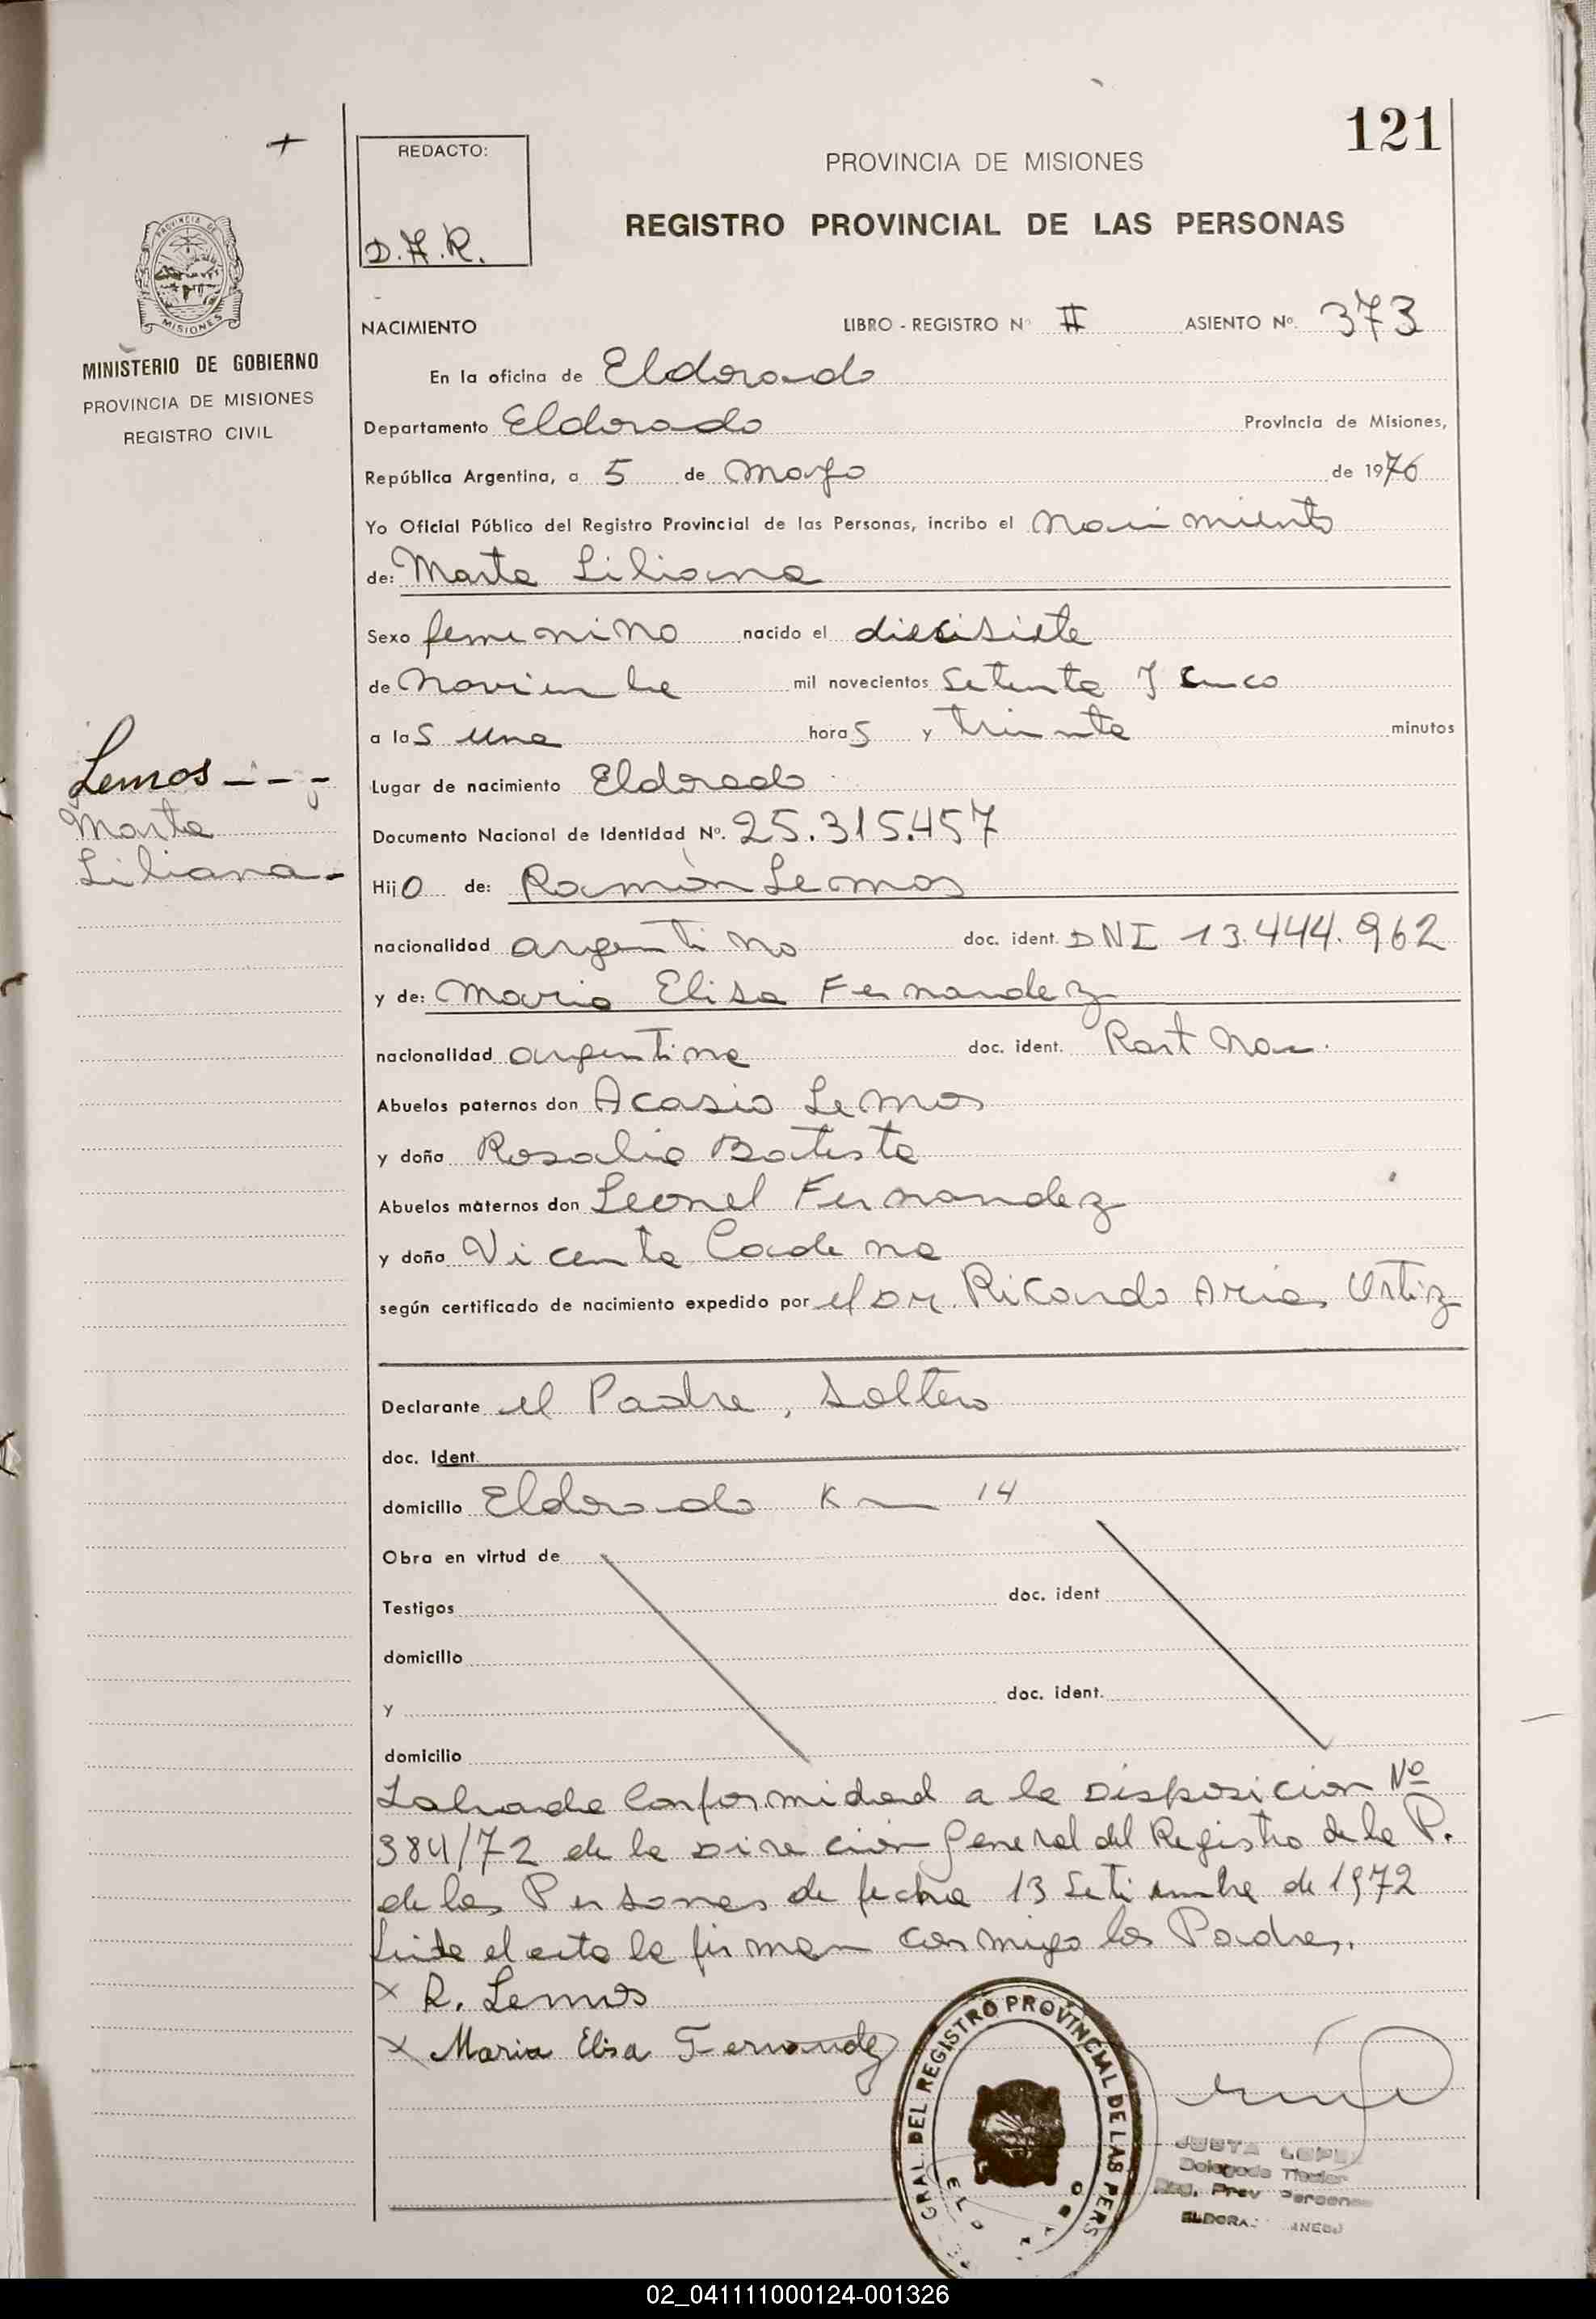 121
+
REDACTO:
D.A.R.
PROVINCIA DE MISIONES
REGISTRO PROVINCIAL DE LAS PERSONAS
PROVINCIA DE
MISIONES
MINISTERIO DE GOBIERNO
PROVINCIA DE MISIONES
REGISTRO CIVIL
NACIMIENTO LIBRO - REGISTRO Nº II ASIENTO Nº. 373
En la oficina de Eldorado
Departamento Eldorado Provincia de Misiones,
República Argentina, a 5 de Mayo de 1976
Yo Oficial Público del Registro Provincial de las Personas, incribo el Nacimiento
de: Marta Liliana
Sexo femenino nacido el diecisiete
de Noviembre mil novecientos Setenta y Cinco
a las una horas y treinta minutos
Lemos - - -
Marta
Liliana -
Lugar de nacimiento Eldorado
Documento Nacional de Identidad Nº. 25.315.457
Hijo de: Ramón Lemos
nacionalidad argentino doc. ident. DNI 13.444.962
y de: Maria Elisa Fernandez
nacionalidad argentina doc. ident.
Abuelos paternos don Acasio Lemos
y doña Rosalia Batista
Abuelos maternos don Leonel Fernandez
y doña Vicenta Cadena
según certificado de nacimiento expedido por el Dr. Ricardo Arias Ortiz
Declarante el Padre, Soltero
doc. Ident.
domicilio Eldorado Km 14
Obra en virtud de
Testigos doc. ident
domicilio
y doc. ident.
domicilio
Labrada Conformidad a la Disposicion Nº
384/72 de la Direccion General del Registro de la P.
de las Personas de fecha 13 Setiembre de 1972
leida el acta la firman conmigo los Padres.
x R. Lemos
x Maria Elisa Fernandez
GRAL. DEL REGISTRO PROVINCIAL DE LAS PERS
JUSTA LOPEZ
Delegada Titular
Reg. Prov Personas
02_041111000124-001326